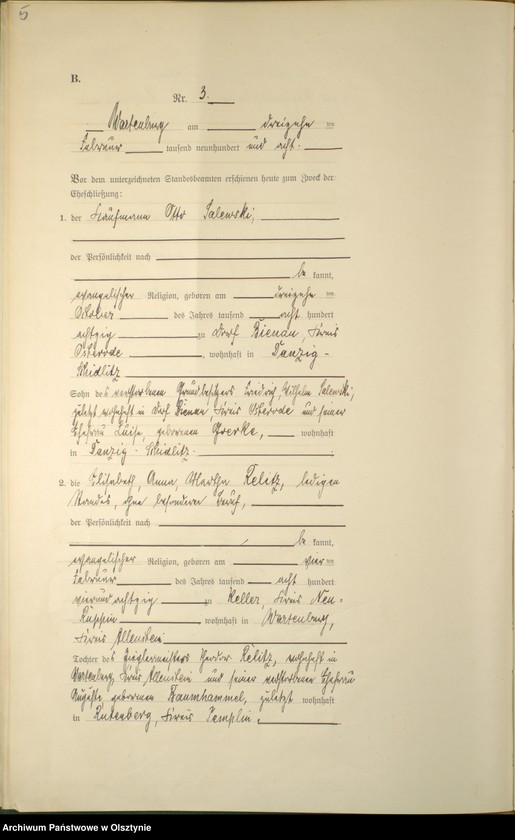 5
B.
Nr. 3.
Wartenburg am dreizehn ten
Februar tausend neunhundert und acht.
Vor dem unterzeichneten Standesbeamten erschienen heute zum Zweck der
Eheschließung:
1. der Kaufmann Otto Salewski,
der Persönlichkeit nach
be kannt,
evangelischer Religion, geboren am dreizehn ten
Oktober des Jahres tausend acht hundert
achtzig zu Dorf Bienau, Kreis
Osterode, wohnhaft in Danzig-
Schidlitz
Sohn des verstorbenen Grundbesitzers Friedrich Wilhelm Salewski,
zuletzt wohnhaft in Dorf Bienau, Kreis Osterode und seiner
Ehefrau Luise, geborenen wohnhaft
in Danzig-Schidlitz.
2. die Elisabeth, Anna, Martha Relitz, ledigen
Standes, ohne besonderen Beruf,
der Persönlichkeit nach
be kannt,
evangelischer Religion, geboren am vier ten
Februar des Jahres tausend acht hundert
vierundachtzig zu Keller, Kreis Neu-
Ruppin, wohnhaft in Wartenburg,
Kreis Allenstein
Tochter des Zieglermeisters Theodor Relitz, wohnhaft in
Wartenburg Kreis Allenstein und seiner verstorbenen Ehefrau
Auguste geborenen Baumhammel, zuletzt wohnhaft
in Rutenberg, Kreis Templin.
Archiwum Państwowe w Olsztynie